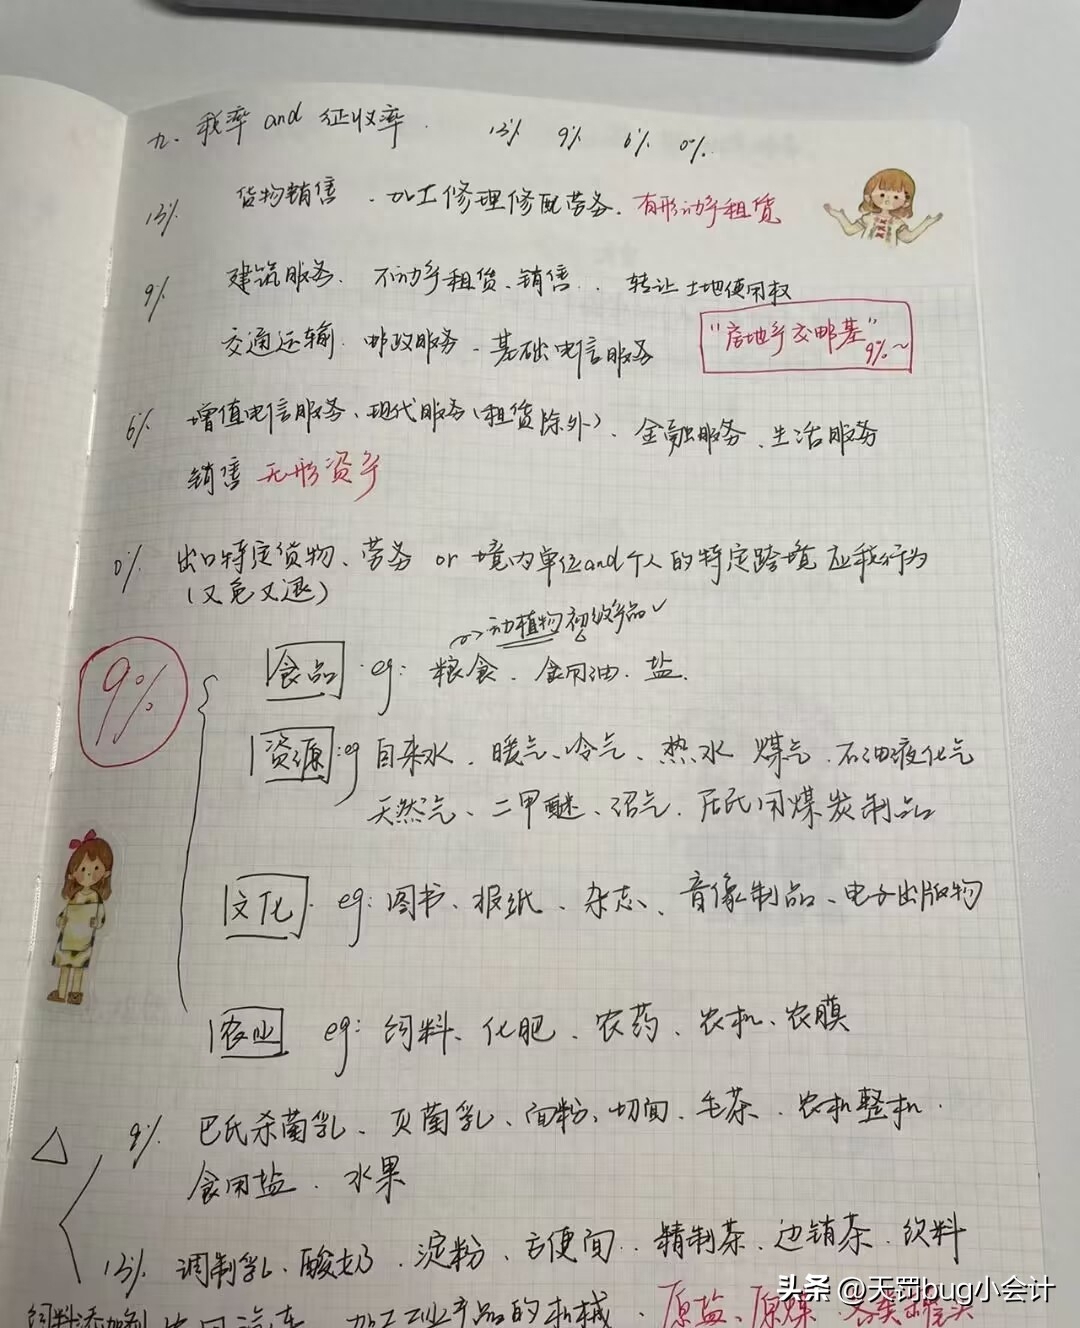 九、税率 and 征收率. 13% 9% 6% 0%.
13% 货物销售、加工修理修配劳务、有形动产租赁
9% 建筑服务、不动产租赁、销售、转让土地使用权
交通运输、邮政服务、基础电信服务 "房地产交邮基" 9%~
6% 增值电信服务、现代服务(租赁除外)、金融服务、生活服务
销售无形资产
0% 出口特定货物、劳务 or 境内单位and个人的特定跨境应税行为
(又免又退)
动植物初级产品✓
9% 食品 eg: 粮食、食用油、盐.
资源:eg 自来水、暖气、冷气、热水 煤气、石油液化气
天然气、二甲醚、沼气、居民用煤炭制品
文化. eg: 图书、报纸、杂志、音像制品、电子出版物
农业 eg: 饲料、化肥、农药、农机、农膜
△ 9% 巴氏杀菌乳、灭菌乳、面粉、切面、毛茶、农机整机.
食用盐、水果
13% 调制乳、酸奶、淀粉、方便面、精制茶、边销茶、饮料
饲料添加剂 农用汽车、加工农产品的机械、原盐、原煤、各类罐头
头条 @天罚bug小会计